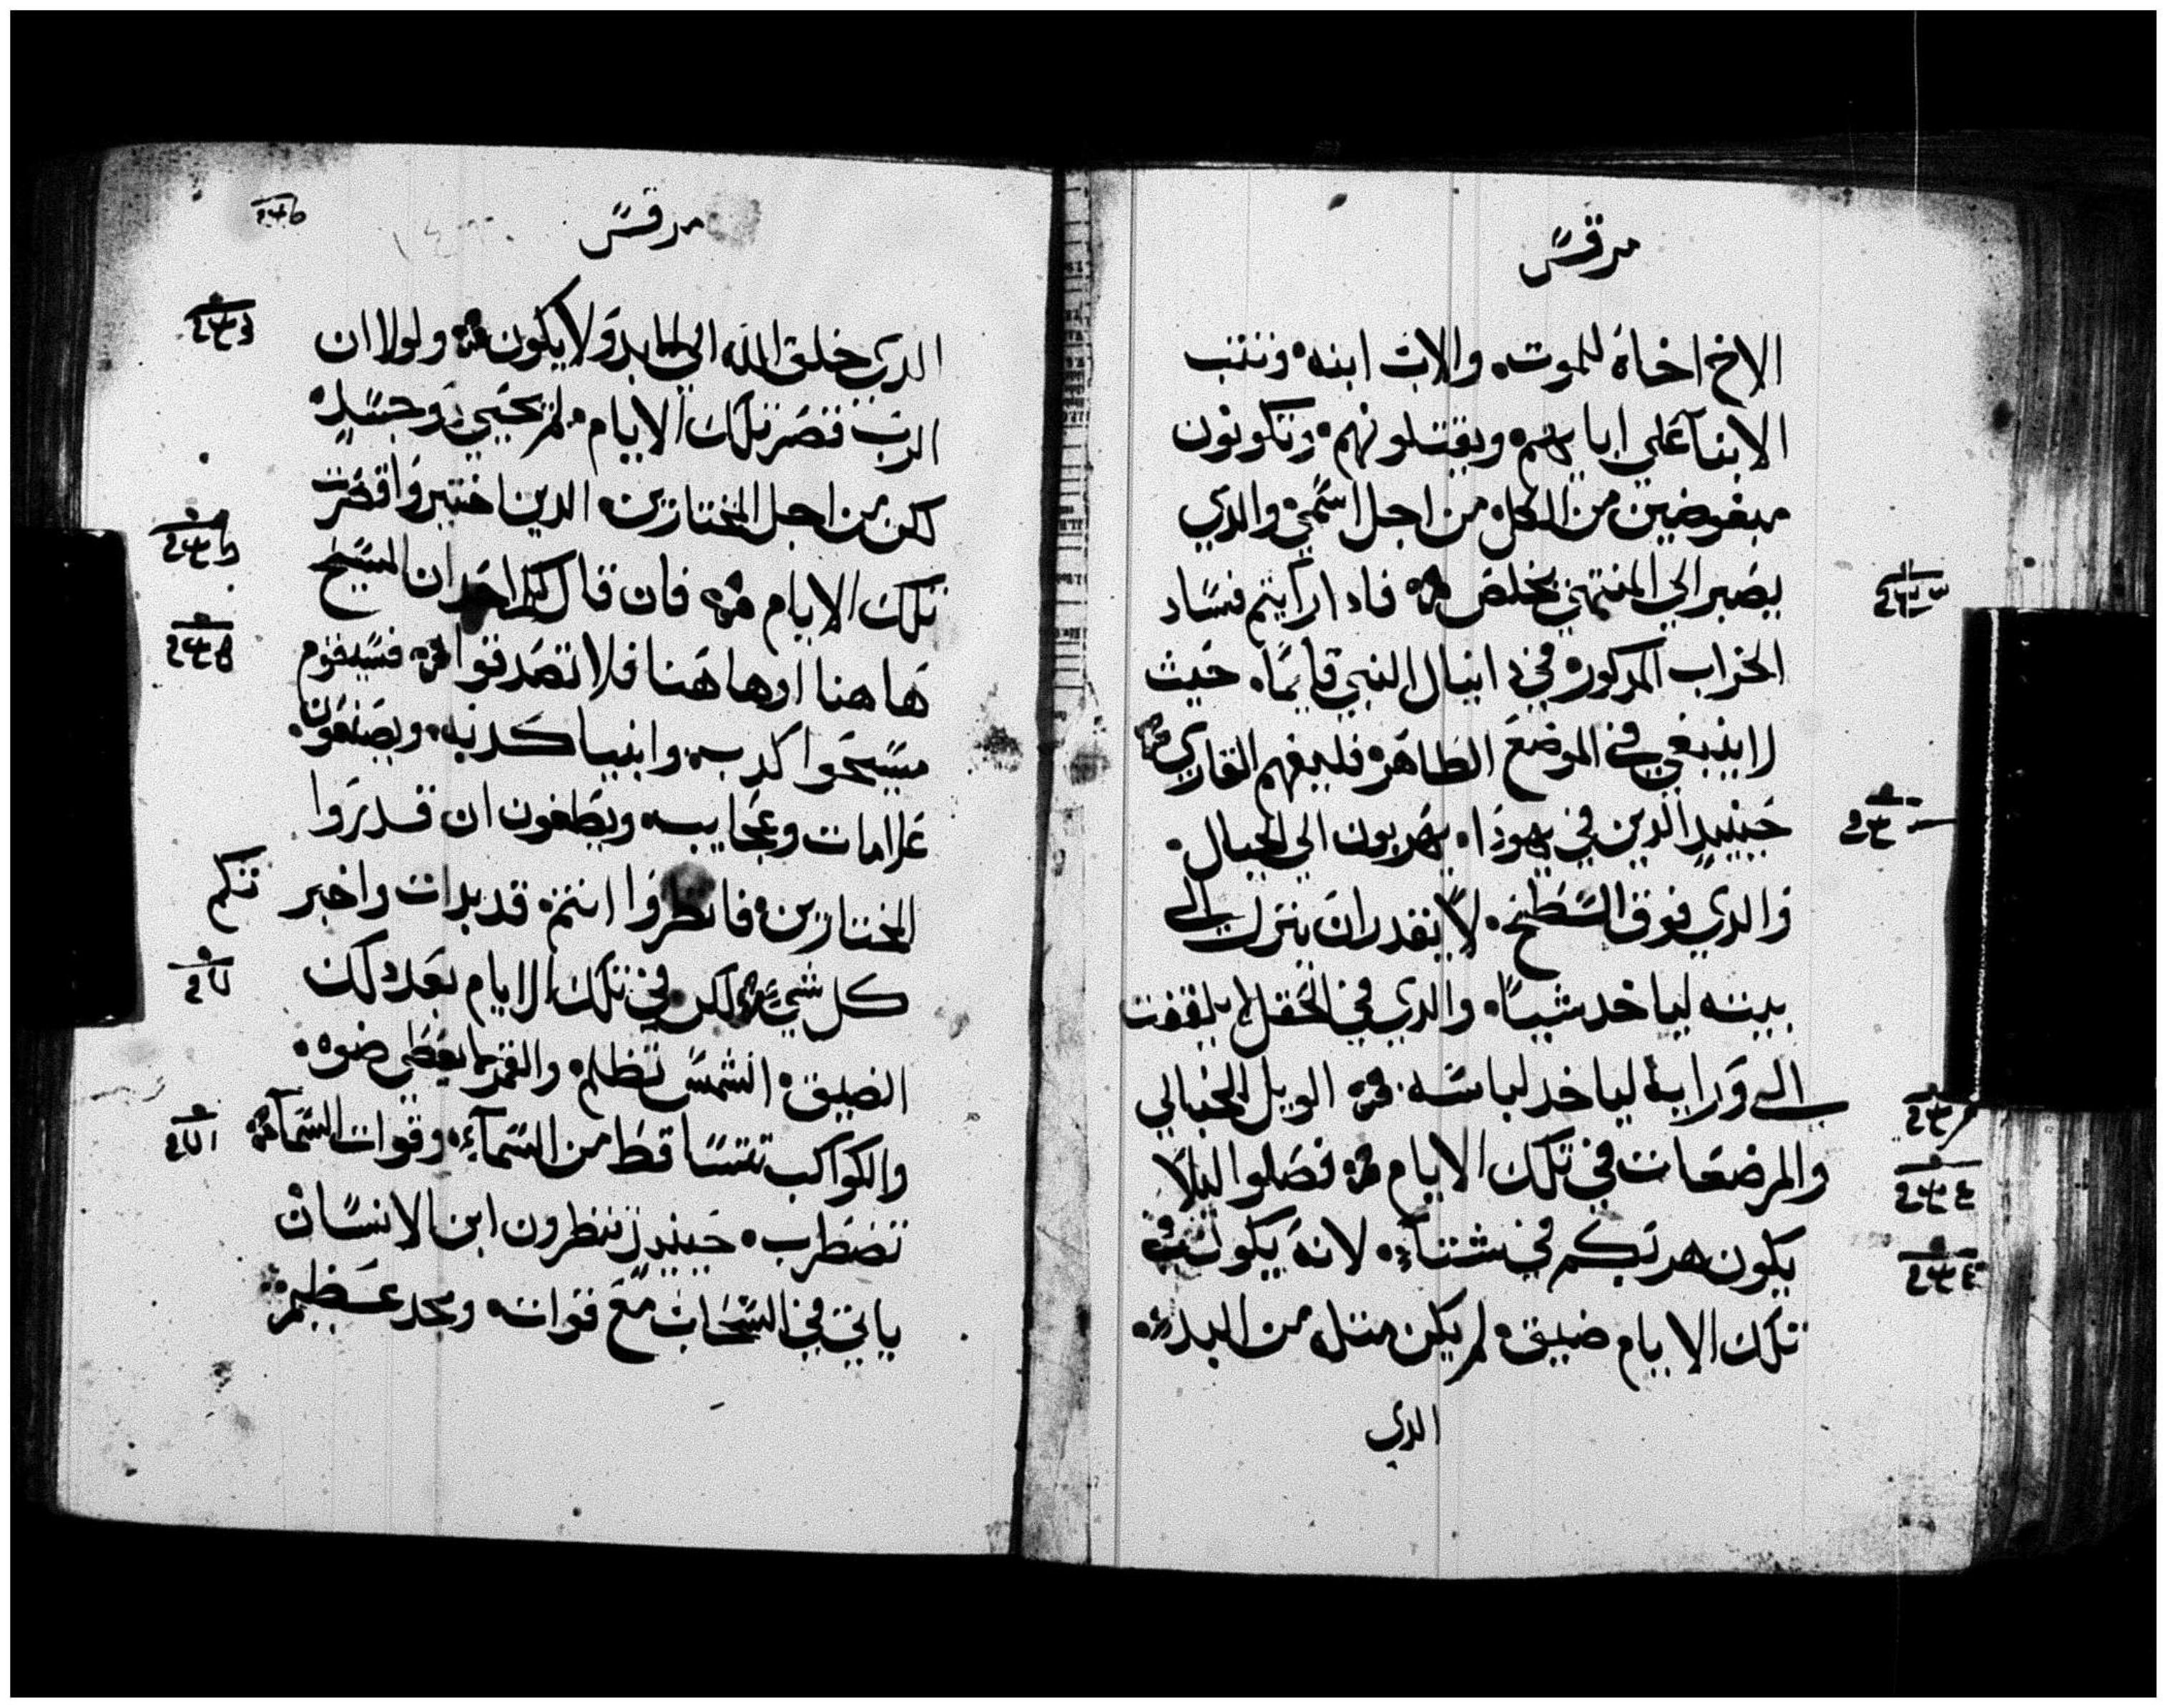 مرقس
الاخ اخاه للموت والاب ابنه وتتب
الابنآ علي ابايهم ويقتلونهم وتكونون
مبغوضين من الكل من اجل اسمي والدي
يصبر الي المنتهي يخلص فادا رايتم فساد
الخراب المدكور في دانيال النبي قايمًا حيث
لاينبغي في الموضع الطاهر فليفهم القاري
حينيدٍ الدين في يهودا يهربون الي الجبال
والدي فوق السطح لا يقدر ان ينزل الي
بيته لياخد شيًا والدي في الحقل لا يلتفت
الي ورايه لياخد لباسه الويل للحبالي
والمرضعات في تلك الايام فصلوا ليلا
يكون هربكم في شتآء لانه يكون في
تلك الايام ضيق لم يكن مثله من البدء
الدي
مرقس
الدي خلق الله الي الابد ولا يكون ولولا ان
الرب قصر تلك الايام لم يحيي دو جسد
لكن من اجل المختارين الدين اختيروا قصرت
تلك الايام فان قال لكم احد ان المسيح
هاهنا اوهاهنا فلا تصدقوا فسيقوم
مسيحوا كدب وانبيا كدبه ويصنعون
علامات وعجايب ويطغون ان قدروا
المختارين فانظروا انتم قد بدات واخبرتكم
كل شي لكن في تلك الايام بعد دلك
الضيق الشمس تظلم والقمر لا يعطي ضوه
والكواكب تتساقط من السمآء وقوات السمآء
تضطرب حينيدٍ تنظرون ابن الانسان
ياتي في السحاب مع قواته ومجد عظيم